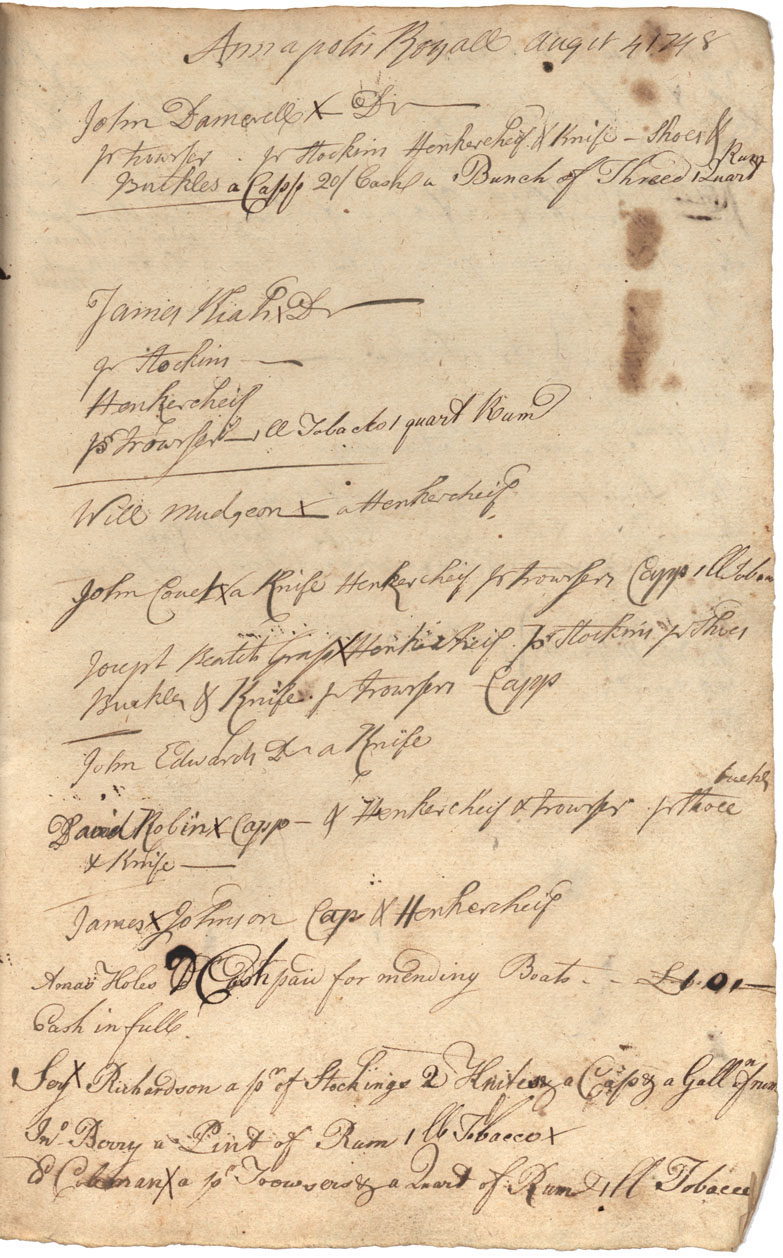 Annapolis Royall Augst 4 1748
John Damerell X Dr
pr trowser pr Stockins Henkercheif & Knife - Shoes &
Buckles a Capp 20/ Cash a Bunch of Threed 1 Quart Rum
James Kiah X Dr
pr Stockins
Henkercheif
pr trowsers 1 ll Tobacko 1 quart Rum
Will Mudgeon X a Henkercheif
John Couet X a Knife Henkercheif pr trowsers Capp 1 ll Toba
Joseph X Henkercheif pr Stockins pr Shoes
Buckles & Knife pr trowsers Capp
John Edwards Dr a Knife
David Robin X Capp - & Henkercheif & trowser pr Shoee buckls
& Knife
James X Johnson Cap & Henkercheif
Amas Holes D Cash paid for mending Boats - - £1.01
Cash in full
Serj X Richardson a pr of Stockings 2 Knifes & a Cap & a Galln of rum
Jno Berry a Pint of Rum 1 lb Tobacco X
Coleman X a pr Trowsers & a Quart of Rum & 1 ll Tobacce